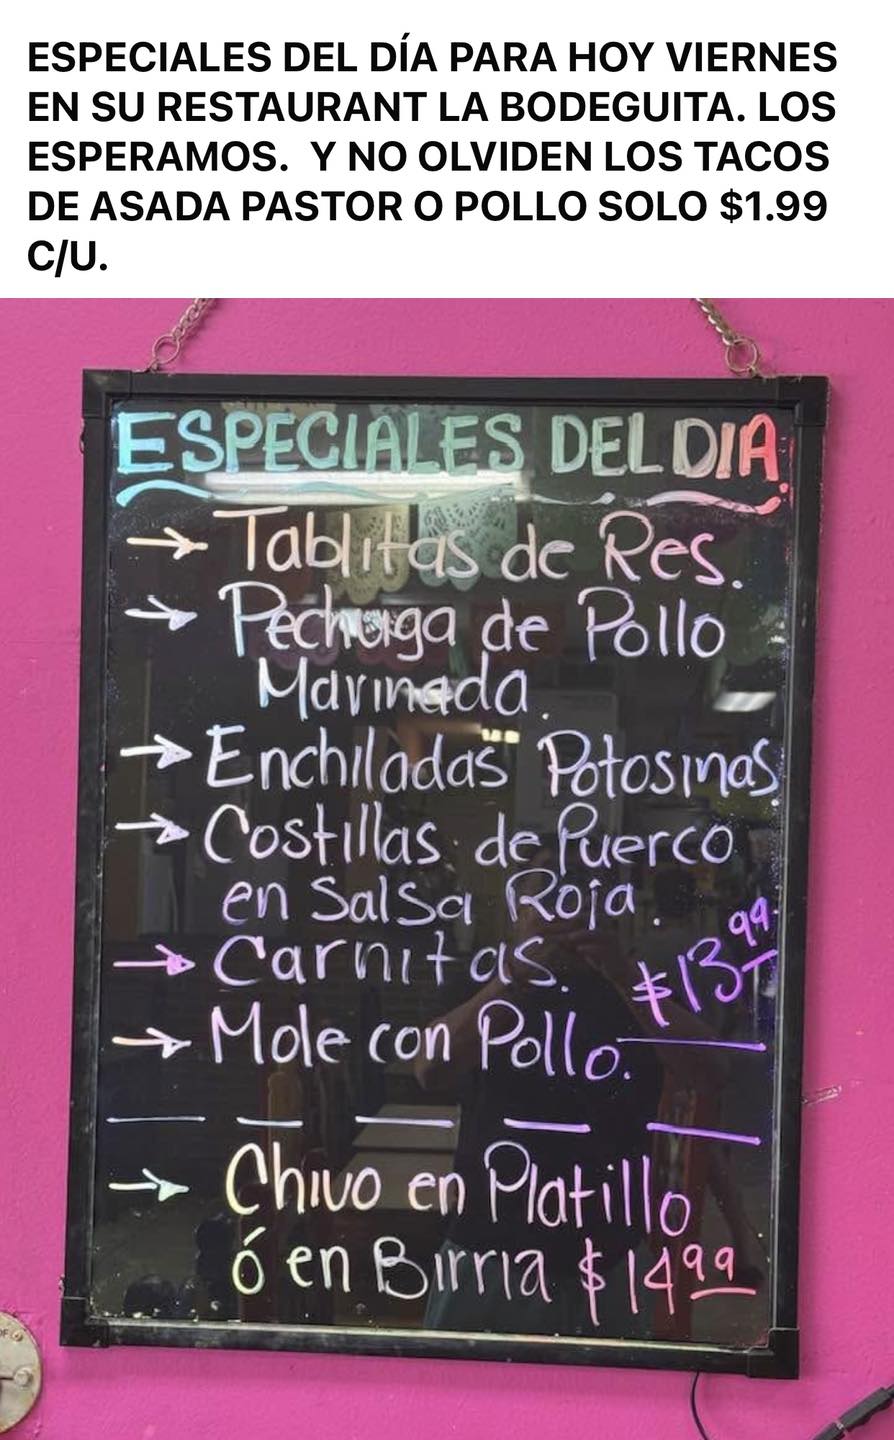 ESPECIALES DEL DÍA PARA HOY VIERNES
EN SU RESTAURANT LA BODEGUITA. LOS
ESPERAMOS.  Y NO OLVIDEN LOS TACOS
DE ASADA PASTOR O POLLO SOLO $1.99
C/U.
ESPECIALES DEL DIA
→ Tablitas de Res.
→ Pechuga de Pollo
Marinada.
→ Enchiladas Potosinas
→ Costillas de Puerco
en Salsa Roja.
→ Carnitas. $13.99
→ Mole con Pollo.
→ Chivo en Platillo
ó en Birria $14.99